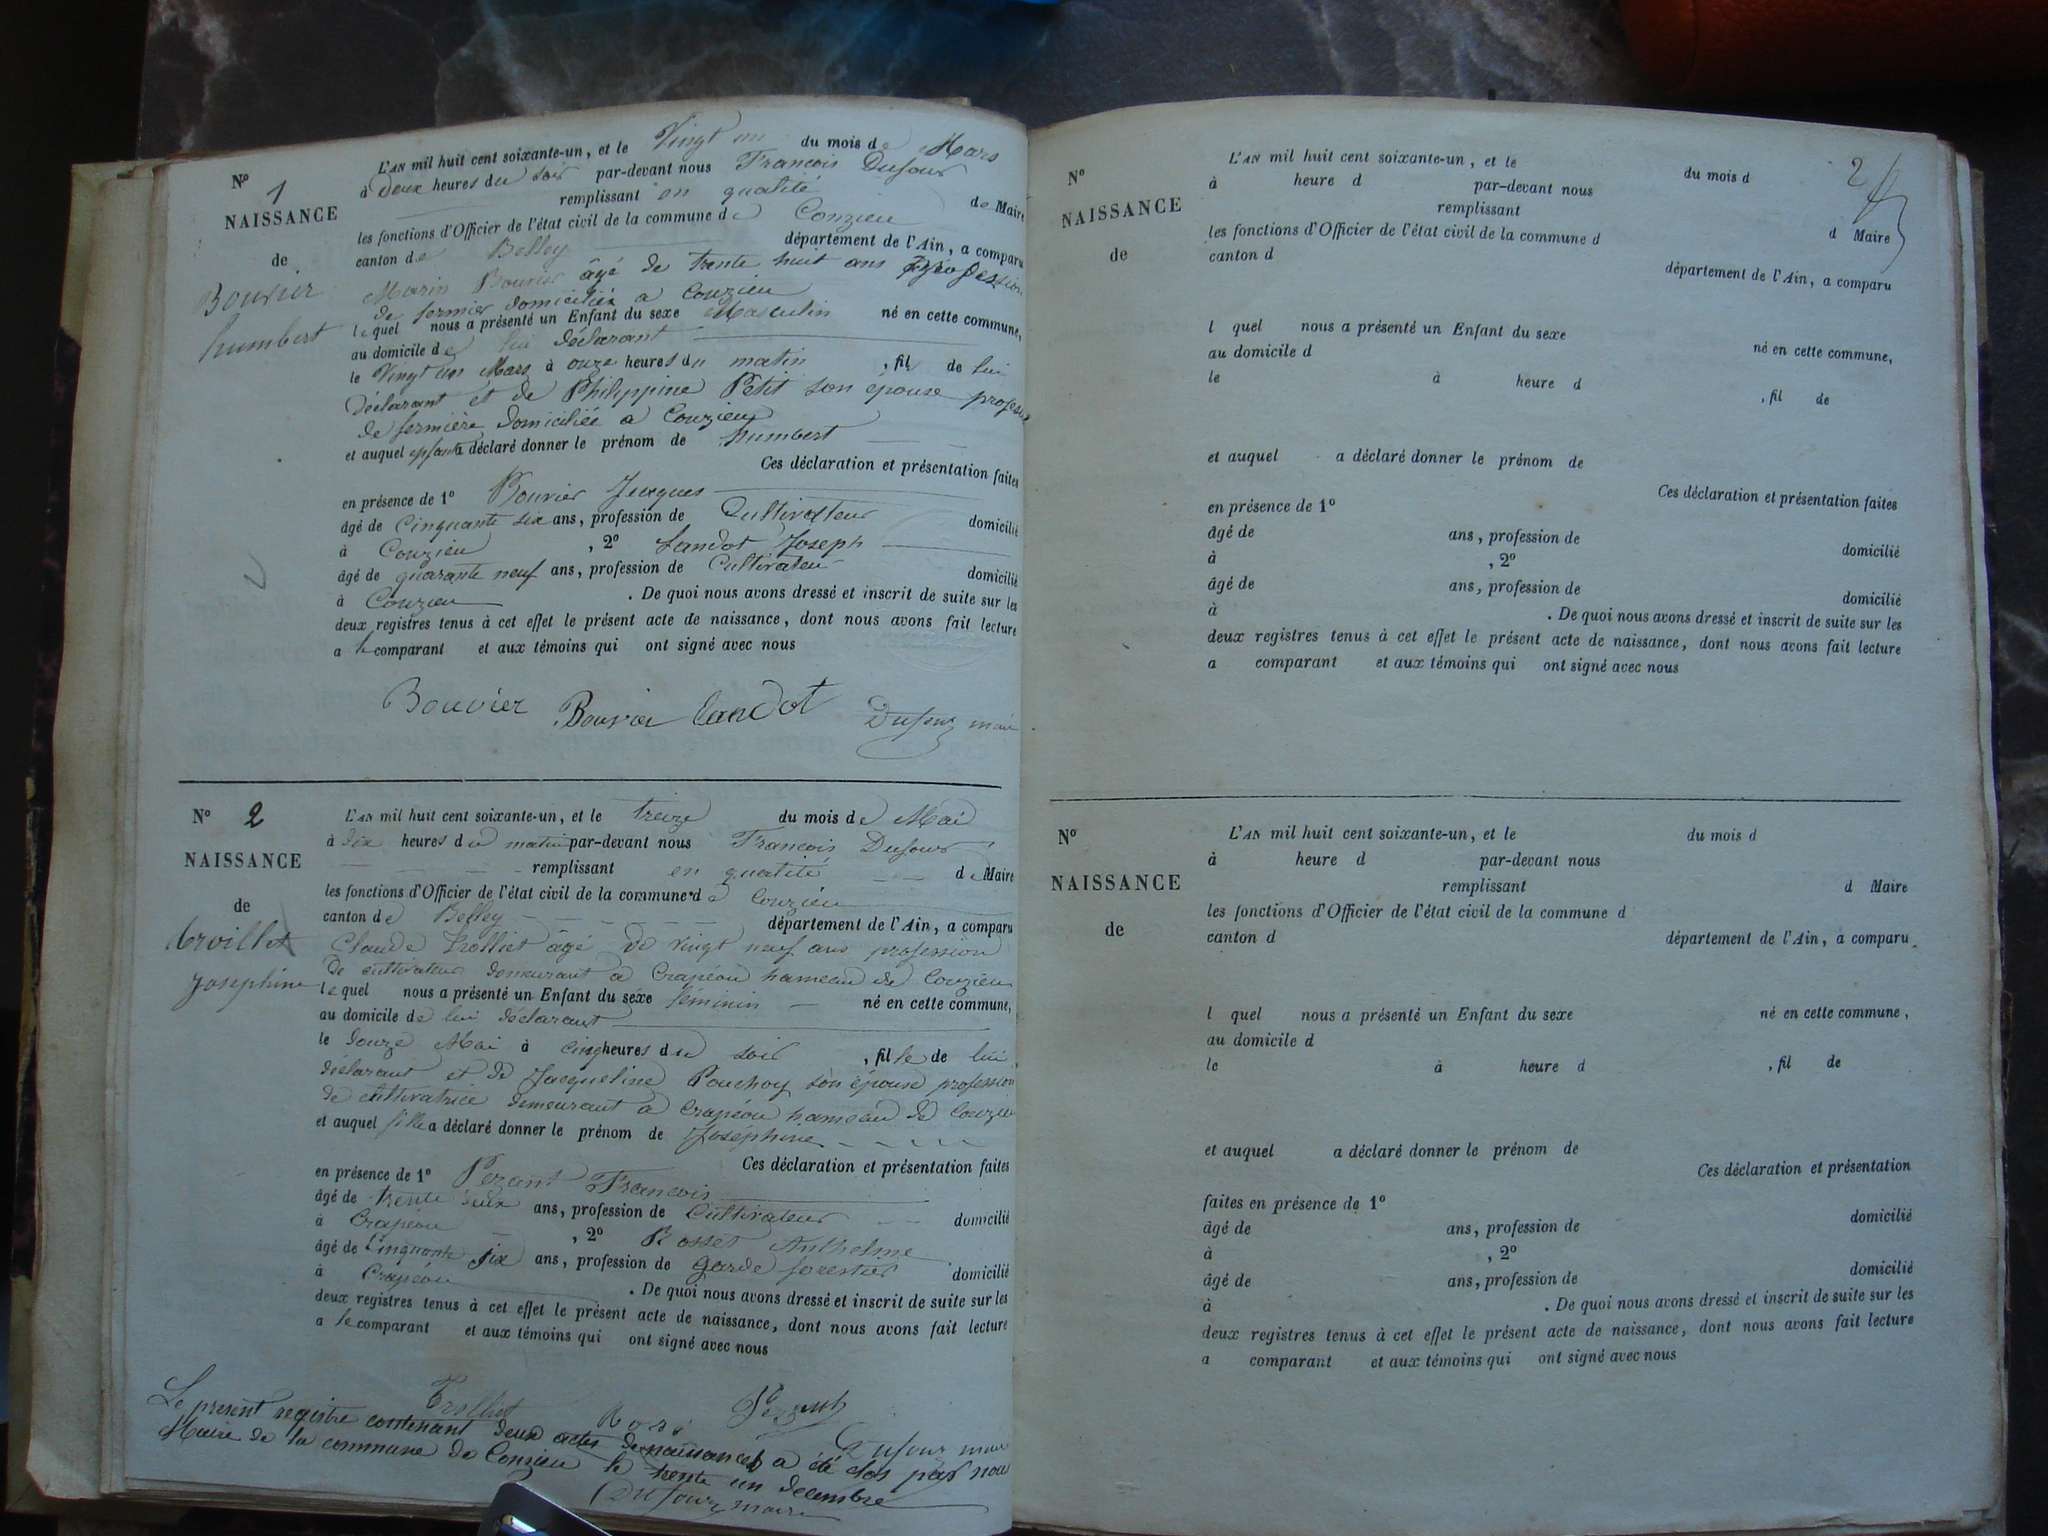 N° 1
NAISSANCE
de
Bouvier
humbert
L'AN mil huit cent soixante-un, et le Vingt un du mois de Mars
à deux heures du soir par-devant nous Francois Dufour
remplissant en qualité de Maire
les fonctions d'Officier de l'état civil de la commune de Conzieu
canton de Belley département de l'Ain, a comparu
Marin Bouvier âgé de trente huit ans profession
de fermier domicilié a Conzieu
lequel nous a présenté un Enfant du sexe Masculin né en cette commune,
au domicile de lui déclarant
le Vingt un Mars à onze heures du matin, fils de lui
déclarant et de Philippine Petit son épouse profession
de fermière domiciliée a Conzieu
et auquel enfant a déclaré donner le prénom de humbert
Ces déclaration et présentation faites
en présence de 1° Bouvier Jacques
âgé de Cinquante six ans, profession de Cultivateur domicilié
à Conzieu, 2° Landot Joseph
âgé de quarante neuf ans, profession de Cultivateur domicilié
à Conzieu. De quoi nous avons dressé et inscrit de suite sur les
deux registres tenus à cet effet le présent acte de naissance, dont nous avons fait lecture
a le comparant et aux témoins qui ont signé avec nous
Bouvier Bouvier Landot Dufour maire
N° 2
NAISSANCE
de
Josephine
L'AN mil huit cent soixante-un, et le treize du mois de Mai
à dix heures du matin par-devant nous Francois Dufour
remplissant en qualité de Maire
les fonctions d'Officier de l'état civil de la commune de Conzieu
canton de Belley département de l'Ain, a comparu
Claude Trolliet âgé de vingt neuf ans profession
de cultivateur demeurant à Crapéou hameau de Conzieu
lequel nous a présenté un Enfant du sexe féminin né en cette commune,
au domicile de lui déclarant
le douze Mai à cinq heures du soir, fille de lui
déclarant et de Jacqueline Pouchoy son épouse profession
de cultivatrice demeurant à Crapéou hameau de Conzieu
et auquel fille a déclaré donner le prénom de Joséphine
Ces déclaration et présentation faites
en présence de 1° Pezant Francois
âgé de trente deux ans, profession de Cultivateur domicilié
à Crapéou, 2° Rosset Anthelme
âgé de Cinquante six ans, profession de garde forestier domicilié
à Crapéou. De quoi nous avons dressé et inscrit de suite sur les
deux registres tenus à cet effet le présent acte de naissance, dont nous avons fait lecture
a le comparant et aux témoins qui ont signé avec nous
Trolliet Pezant
Dufour maire
Le présent registre contenant deux actes de naissances a été clos par nous
Maire de la commune de Conzieu le trente un décembre
Dufour maire
2
N°
NAISSANCE
de
L'AN mil huit cent soixante-un, et le du mois d
à heure d par-devant nous
remplissant d Maire
les fonctions d'Officier de l'état civil de la commune d
canton d département de l'Ain, a comparu
l quel nous a présenté un Enfant du sexe né en cette commune,
au domicile d
le à heure d, fil de
et auquel a déclaré donner le prénom de
Ces déclaration et présentation faites
en présence de 1°
âgé de ans, profession de domicilié
à, 2°
âgé de ans, profession de domicilié
à. De quoi nous avons dressé et inscrit de suite sur les
deux registres tenus à cet effet le présent acte de naissance, dont nous avons fait lecture
a comparant et aux témoins qui ont signé avec nous
N°
NAISSANCE
de
L'AN mil huit cent soixante-un, et le du mois d
à heure d par-devant nous
remplissant d Maire
les fonctions d'Officier de l'état civil de la commune d
canton d département de l'Ain, a comparu
l quel nous a présenté un Enfant du sexe né en cette commune,
au domicile d
le à heure d, fil de
et auquel a déclaré donner le prénom de
Ces déclaration et présentation
faites en présence de 1°
âgé de ans, profession de domicilié
à, 2°
âgé de ans, profession de domicilié
à. De quoi nous avons dressé et inscrit de suite sur les
deux registres tenus à cet effet le présent acte de naissance, dont nous avons fait lecture
a comparant et aux témoins qui ont signé avec nous